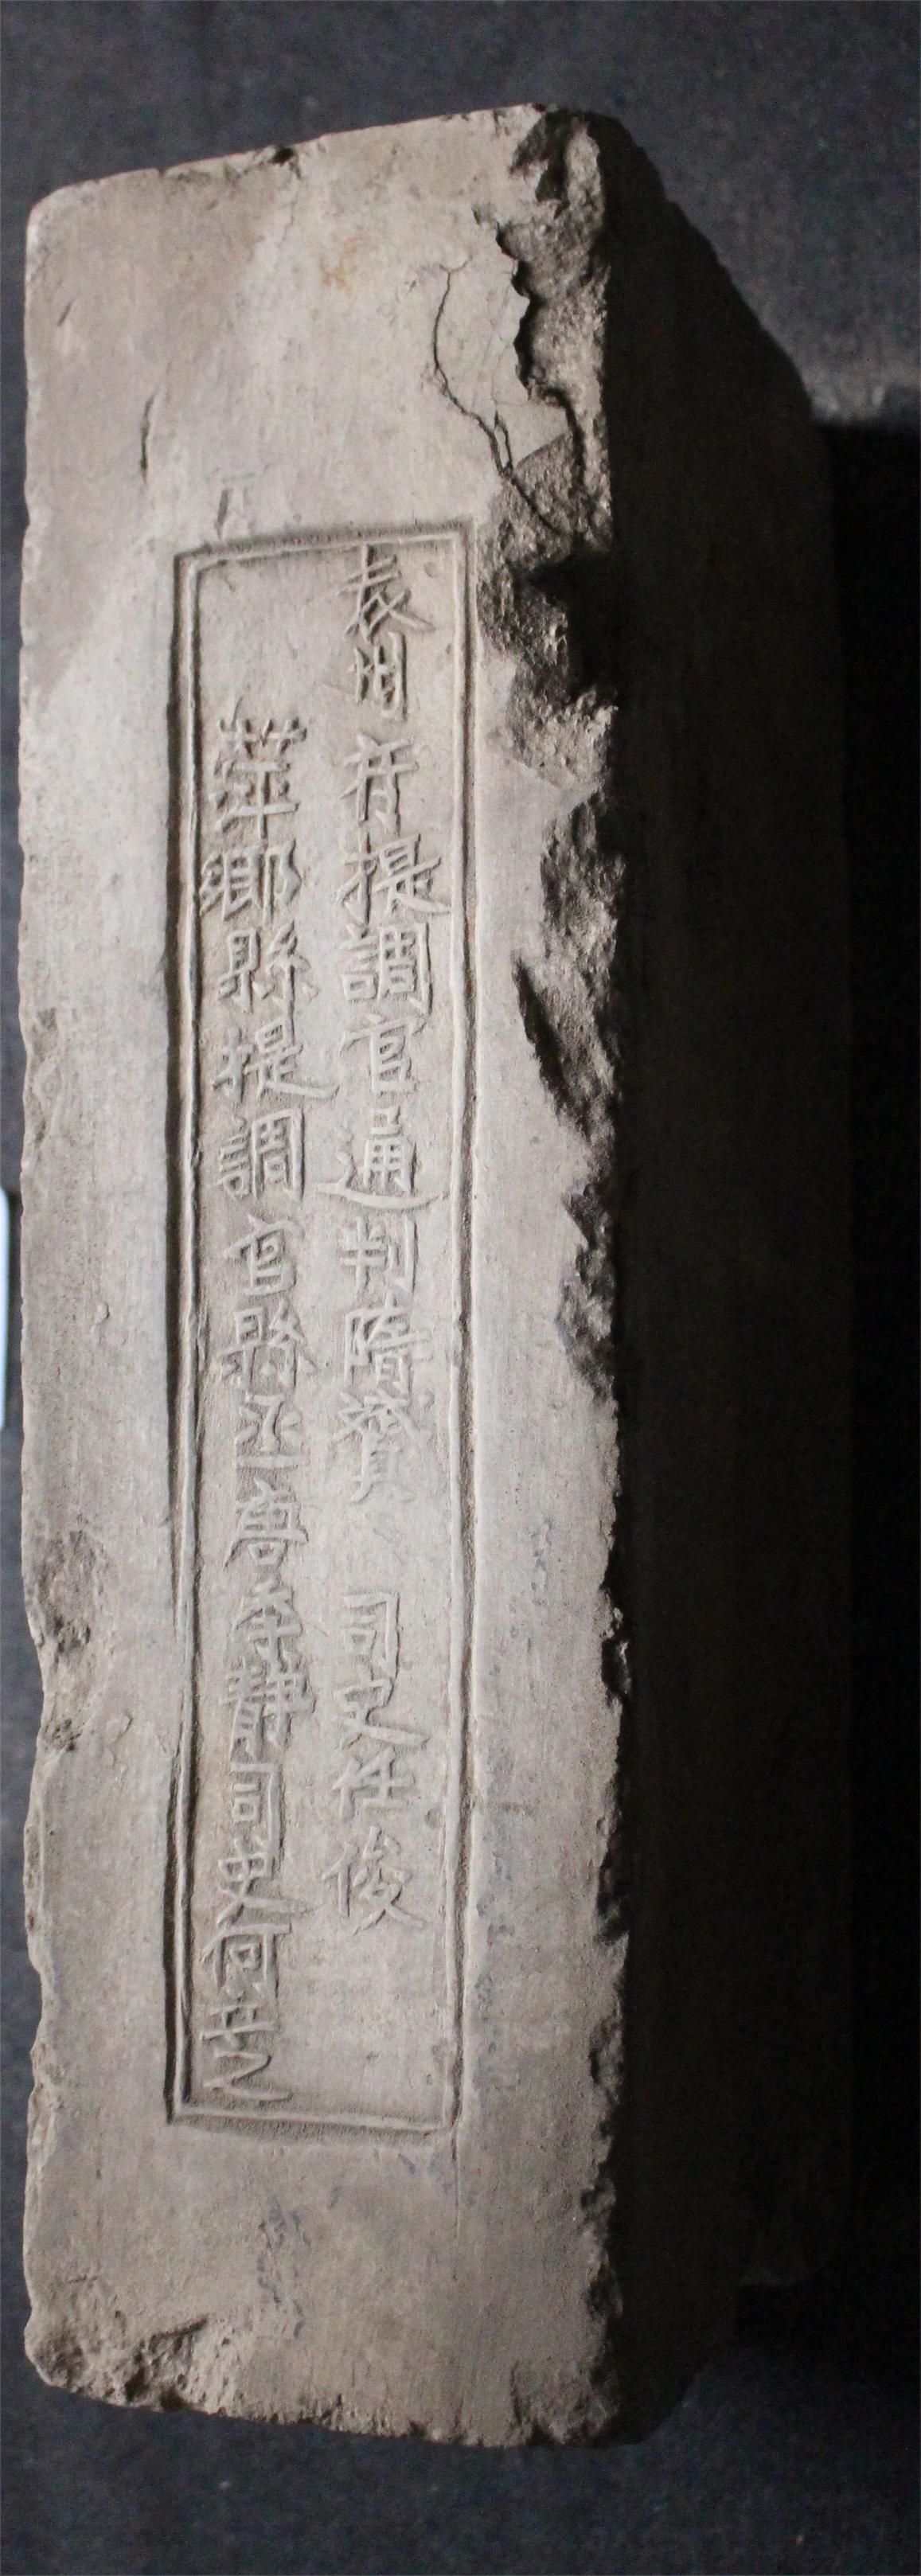 袁州府提調官通判隋贇 司吏任俊
萍鄉縣提調官縣丞靜司吏何